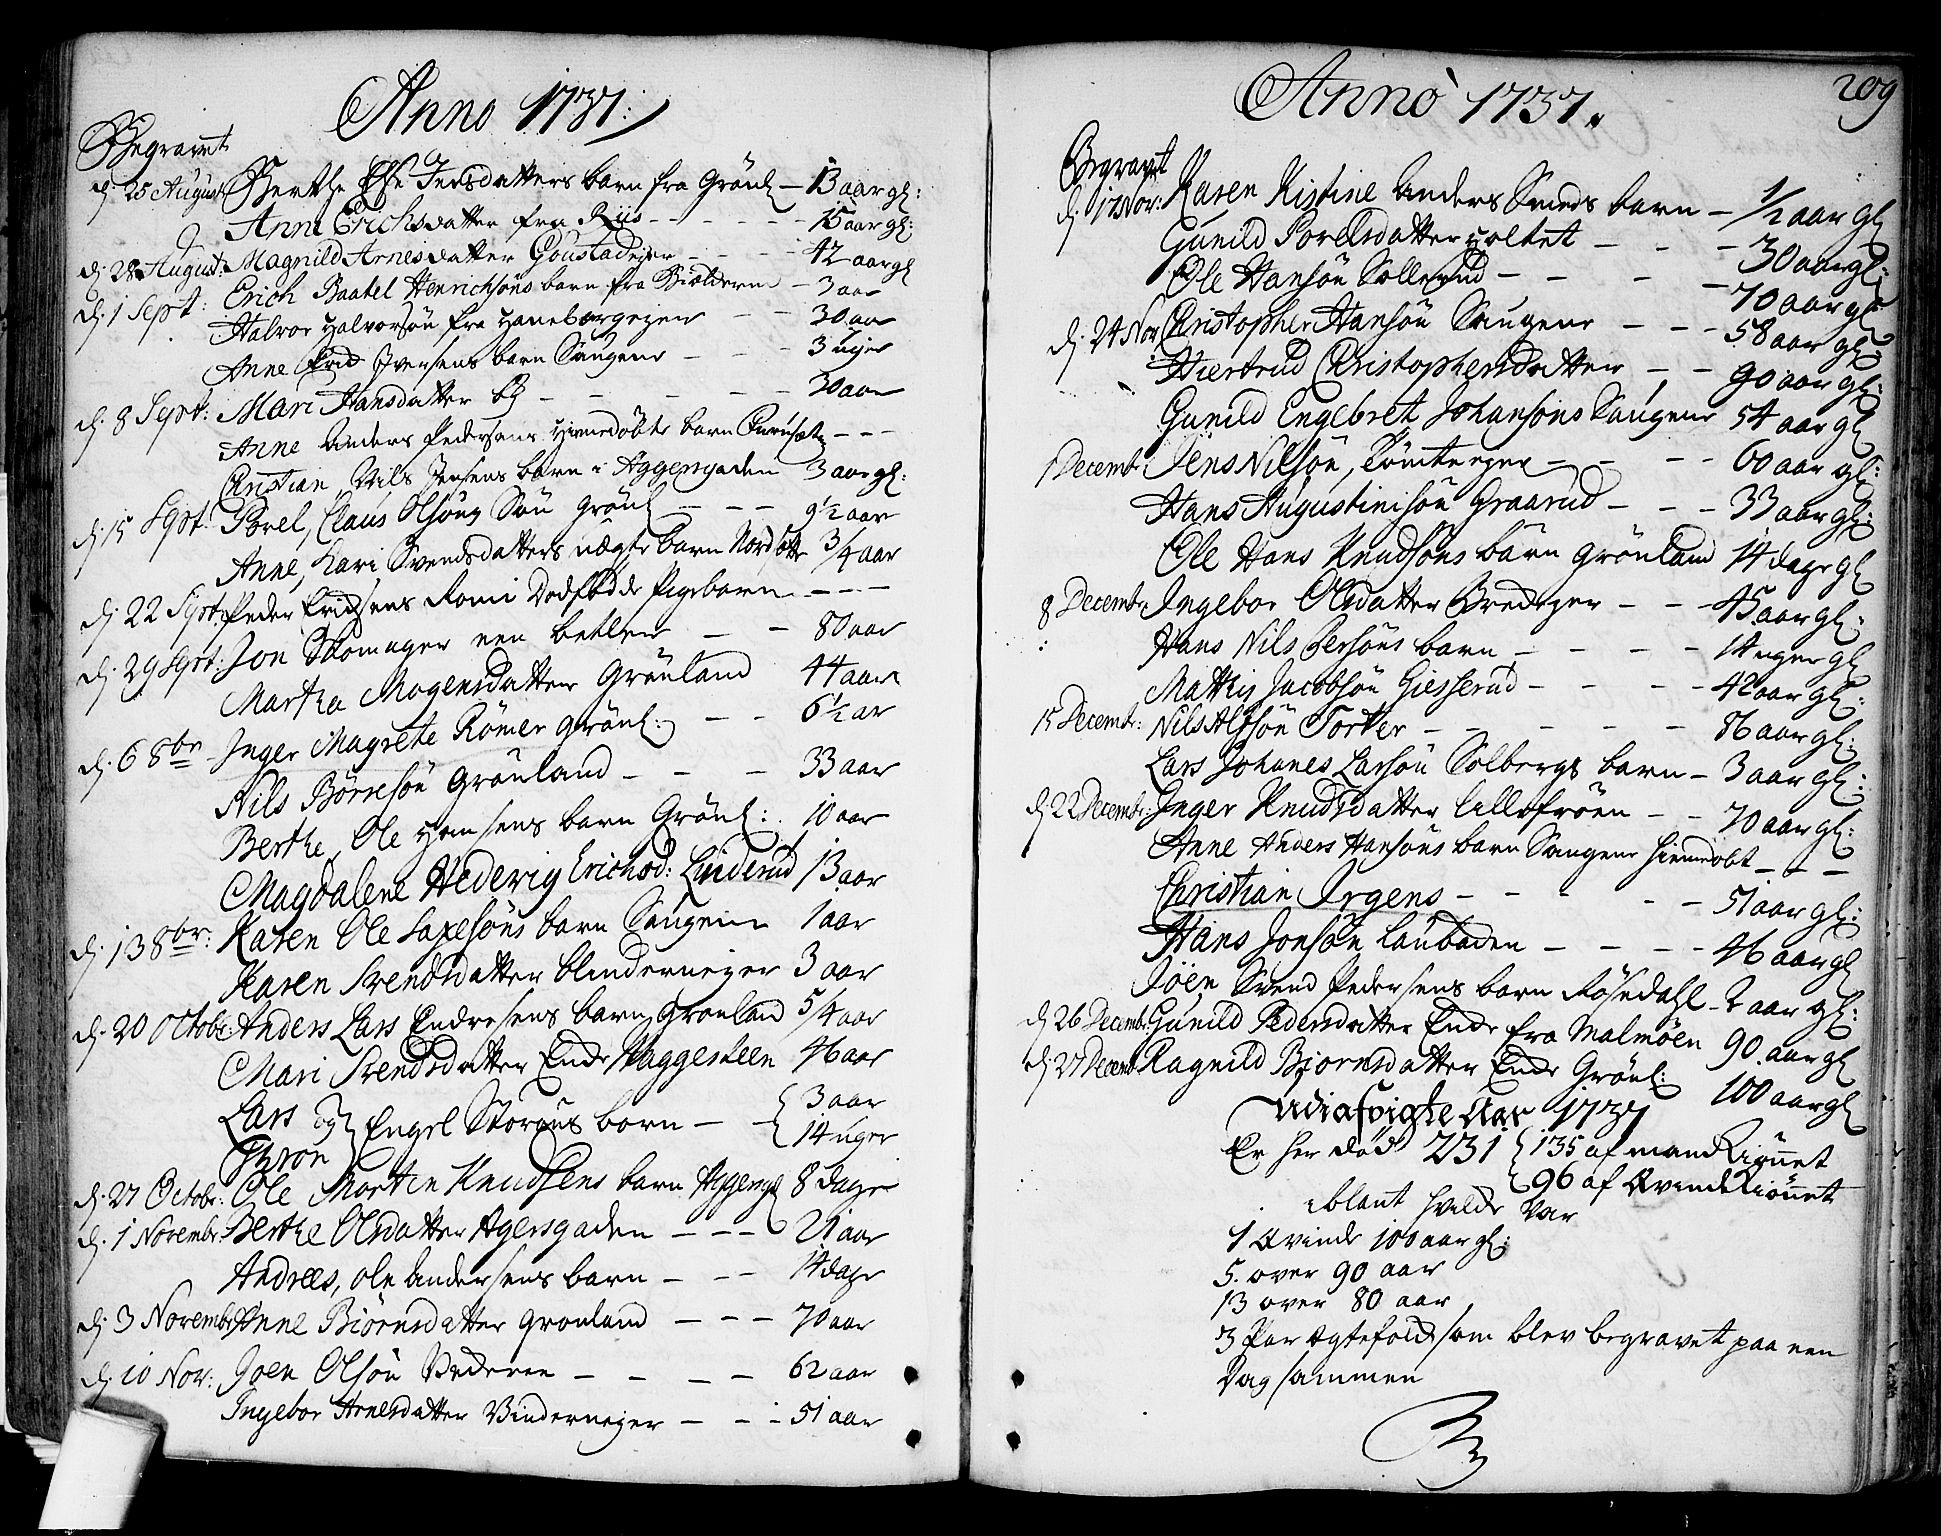 Anno 1737.
Begravet
d. 25 August Berthe Else Jensdatters barn fra Grönl – 13 aar gl:
Anne Erichsdatter fra Riis – – – 15 aar gl:
d. 28 August: Magnild Arnesdatter Goustadejer – – 42 aar gl
d. 1 Sept: Erich Baatel Henrichsöns barn fra – 3 aar
Halvor Halvorsön fra Haneborgeyer – – 30 aar
Anne Iversens barn Saugene – – – 3 uger
d. 8 Sept: Mari Hansdatter – – – – 30 aar
Anne Anders Pedersens Hiemedöbte barn – – –
Christian Nils Jensens barn i Aggersgaden 3 aar gl:
d. 15 Sept: Povel, Claus Olsöns Sön Grönl – – – 9½ aar
Anne, Kari Svendsdatters uægte barn 3/4 aar
d. 22 Sept: Peder Romi Dodfödde Pigebarn – – –
d. 29 Sept: Jon Skomager een betler – – 80 aar
Martha Mogensdatter Grönland 44 aar
d. 6 8br Inger Magrete Römer Grönl: – – 6½ ar
Nils Börresön Grönland – – – 33 aar
Berthe, Ole Hansens barn Grönl: 10 aar
Magdalene Hedevig Erichsd: Linderud 13 aar
d. 13 8br: Karen Ole Saxesöns barn Saugene 1 aar
Karen Svendsdatter Blinderneyer 3 aar
d. 20 Octobr: Anders Lars Endresens barn, Gronland 5/4 aar
Mari Svendsdatter Encke Vaggesteen 46 aar
Lars og } Engel Storous born – – { 3 aar
Gyron 14 uger
d. 27 Octobr: Ole Morten Knudsens barn Aggersg 8 dage
d. 1 Novembr: Berthe Olsdatter Agersgaden – – – 21 aar
Andrees, Ole Andersens barn – – – 14 dage
d. 3 Novembr Anne Biörnsdatter Gronland – – – 70 aar
d. 10 Nov: Joen Olsön – – – – 62 aar
Ingebor Arnesdatter Vinderneyer – – – 51 aar
Anno 1737.
209
Begravet
d. 17 Nov: Karen Kistine Anders Smeds barn – 1/2 aar gl
Gunild Povelsdatter Holtet – – – 30 aar gl:
Ole Hansön Sollerud – – – – 70 aar gl:
d. 24 Nov Christopher Hansön Saugene – – – 58 aar gl:
Hiertrud Christophersdatter – – 90 aar gl:
Gunild Engebret Johansöns Saugene 54 aar gl
1 Decembr: Jens Nilsön, Tömteeyer – – – 60 aar gl:
Hans Augustinisön Graarud – – – 33 aar gl:
Ole Hans Knudsöns barn Grönland 14 dage gl
8 Decembr Ingebor Olsdatter Bredeyer – – 45 aar gl:
Hans Nils Persöns barn – – – – 14 uger gl
Mathis Jacobsön Giesserud – – – – 42 aar gl:
15 Decembr: Nils Alfsön Torker – – – – – 86 aar gl:
Lars Johanes Larsön Solbergs barn – 3 aar gl:
d. 22 Decembr: Inger Knudsdatter Lillefröen – – 70 aar gl:
Anne Anders Hansöns barn Saugene hiemedöbt – – –
Christian Jrgens – – – – – 51 aar gl:
Hans Jonsön Laubaden – – – – 46 aar gl
Jöen Svend Pedersens barn Rösedahl – 2 aar gl:
d. 26 Decembr: Gunild Pedersdatter Encke fra Malmöen 90 aar gl
d. 27 Decembr Ragnild Biornsdatter Encke Grönl: 100 aar gl
Udi afvigte Aar 1737
Er her död 231 { 135 af mandKiönnet
96 af QvindeKiönnet
iblant hvilke var
1 Qvinde 100 aar gl:
5. over 90 aar
13 over 80 aar
3 Par Egtefolck som blev begravet paa een
Dag sammen